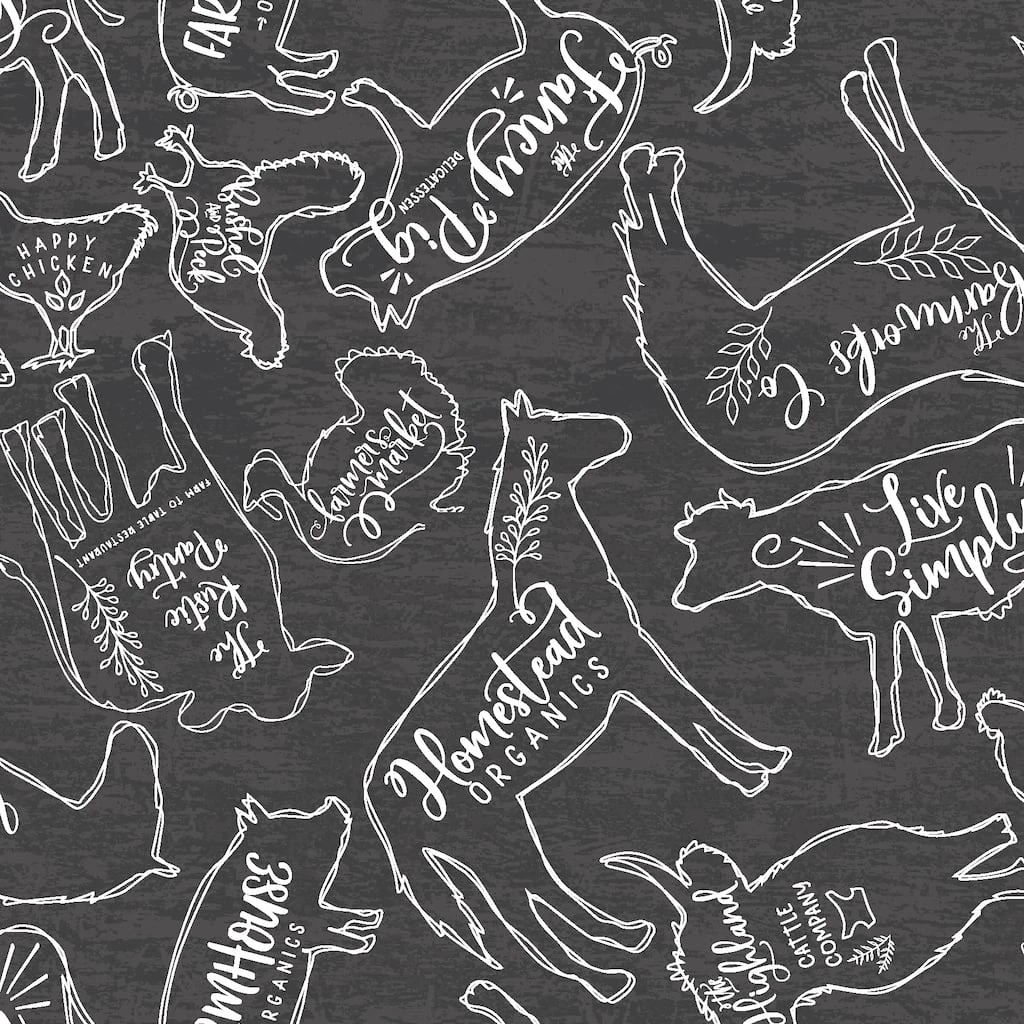 FAR
The
Fancy
Pig
DELICATESSEN
HAPPY
CHICKEN
Bushel
AND A
Peck
The
Barnworks
Co.
farmers
market
Live
Simply
The
Rustic
Pantry
FARM TO TABLE RESTAURANT
Homestead
ORGANICS
RMHOUSE
RGANICS
The
Highland
CATTLE
COMPANY